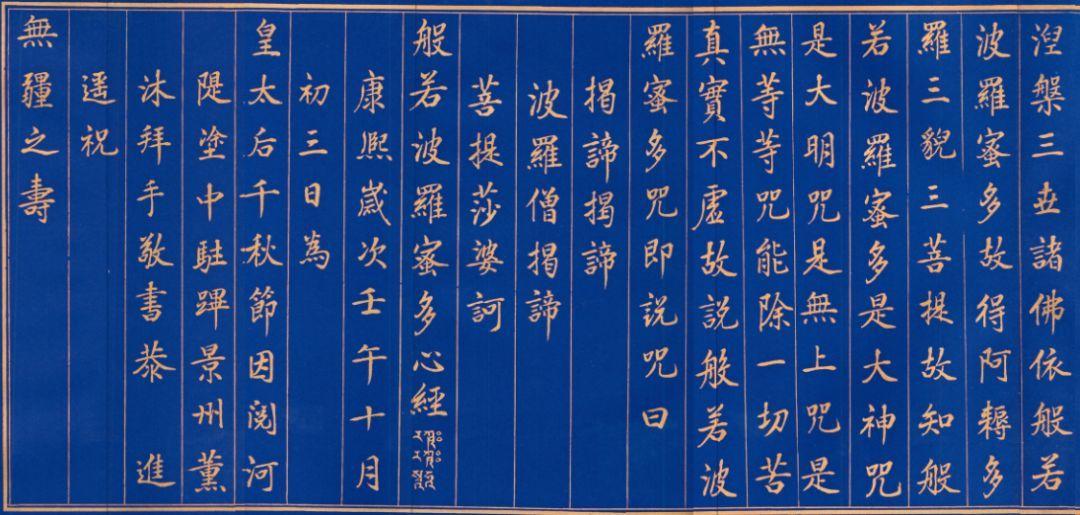 涅槃三世諸佛依般若
波羅蜜多故得阿耨多
羅三藐三菩提故知般
若波羅蜜多是大神咒
是大明咒是無上咒是
無等等咒能除一切苦
真實不虛故說般若波
羅蜜多咒即説咒曰
揭諦揭諦
波羅僧揭諦
菩提莎婆訶
般若波羅蜜多心經
康熙歲次壬午十月
初三日為
皇太后千秋節因閱河
隄塗中駐蹕景州薰
沐拜手敬書恭進
遥祝
無疆之壽